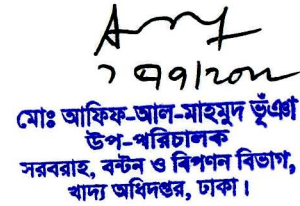 মোঃ আফিফ-আল-মাহমুদ ভূঁঞা
উপ-পরিচালক
সরবরাহ, বন্টন ও বিপণন বিভাগ,
খাদ্য অধিদপ্তর, ঢাকা।